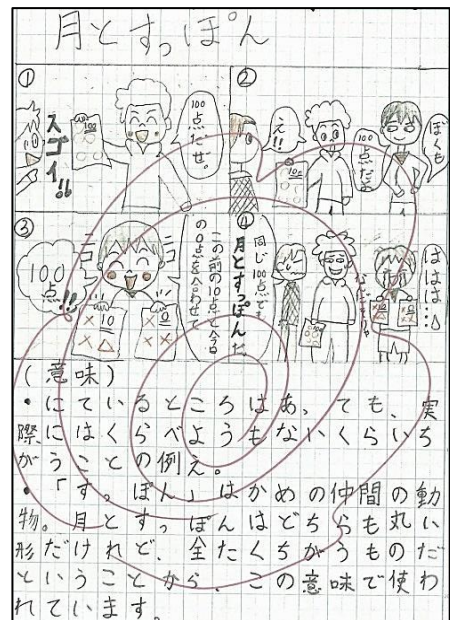 月とすっぽん
①
100点だぜ。
スゴイ!!
②
ぼくも
100点だよ
え!!
③
この前の0点と今日
の0点を合わせて
ニコ
ニコ
100点!!
④
同じ100点でも
月とすっぽんだ
ははは…
(意味)
・にているところはあっても、実
際にはくらべようもないくらいち
がうことの例え。
・「すっぽん」はかめの仲間の動
物。月とすっぽんはどちらも丸い
形だけれど、全たくちがうものだ
ということから、この意味で使わ
れています。